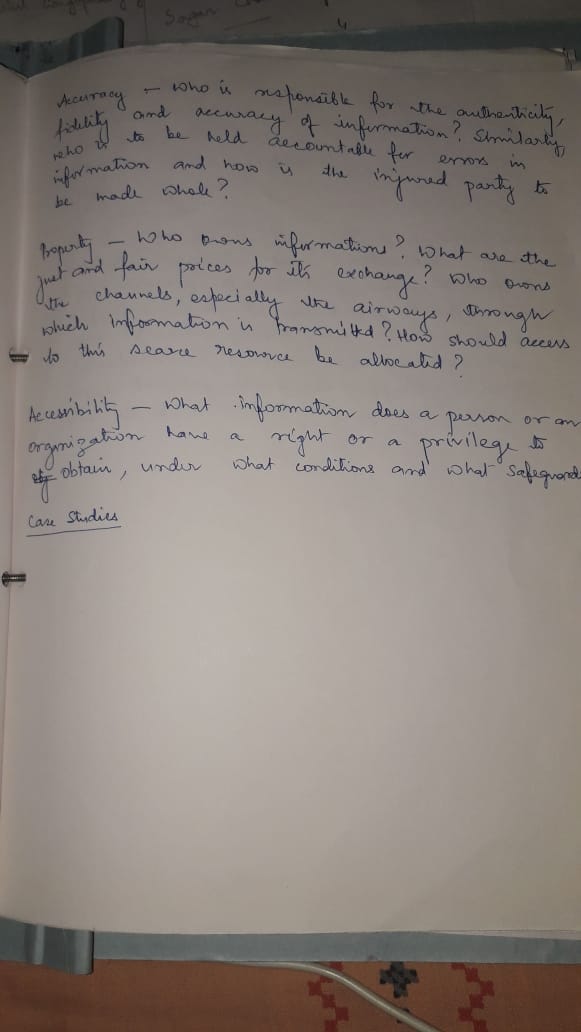 Sagar
Accuracy - who is responsible for the authenticity,
fidelity and accuracy of information? Similarly,
who is to be held accountable for errors in
information and how is the injured party to
be made whole?
Property - Who owns informations? What are the
just and fair prices for its exchange? Who owns
the channels, especially the airways, through
which information is transmitted? How should access
to this scarce resource be allocated?
Accessibility - What information does a person or an
organization have a right or a privilege to
obtain, under what conditions and what safeguards
Case Studies